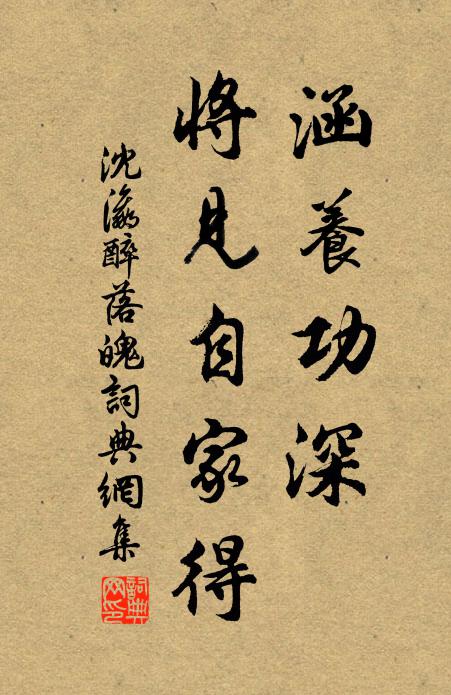 涵養功深
將見自家得
沈瀛醉落魄詞典網集
詞典
网印